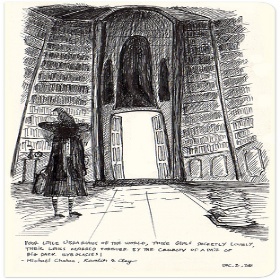 POOR LITTLE LIBRARIANS OF THE WORLD, THOSE GIRLS SECRETLY LOVELY,
THEIR LOOKS MARRED FOREVER BY THE CRUELTY OF A PAIR OF
BIG DARK EYEGLASSES!
- Michael Chabon, Kavalier & Clay
DEC. 2.